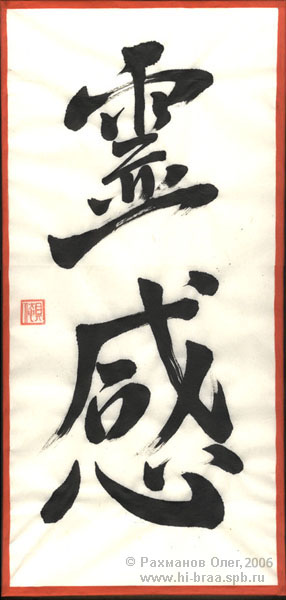 霊
感
© Рахманов Олег, 2006
www.hi-braa.spb.ru